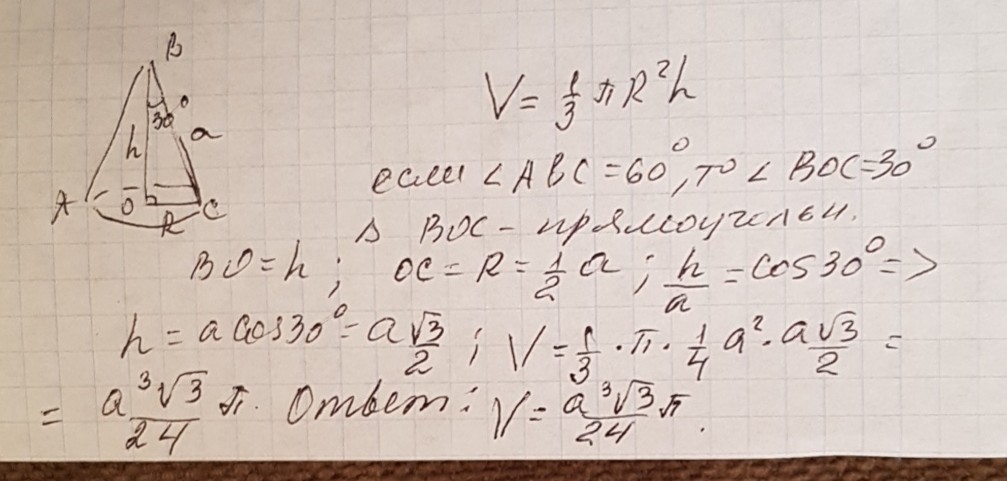 B
30°
h
a
A
O
C
R
V = 1/3 πR²h
если ∠ABC=60°, то ∠BOC=30°
Δ BOC - прямоугольн.
BO=h; OC=R=1/2 a; h/a = cos30° =>
h = a cos30° = a√3/2; V = 1/3 · π · 1/4 a² · a√3/2 =
= a³√3/24 π. Ответ: V = a³√3/24 π.